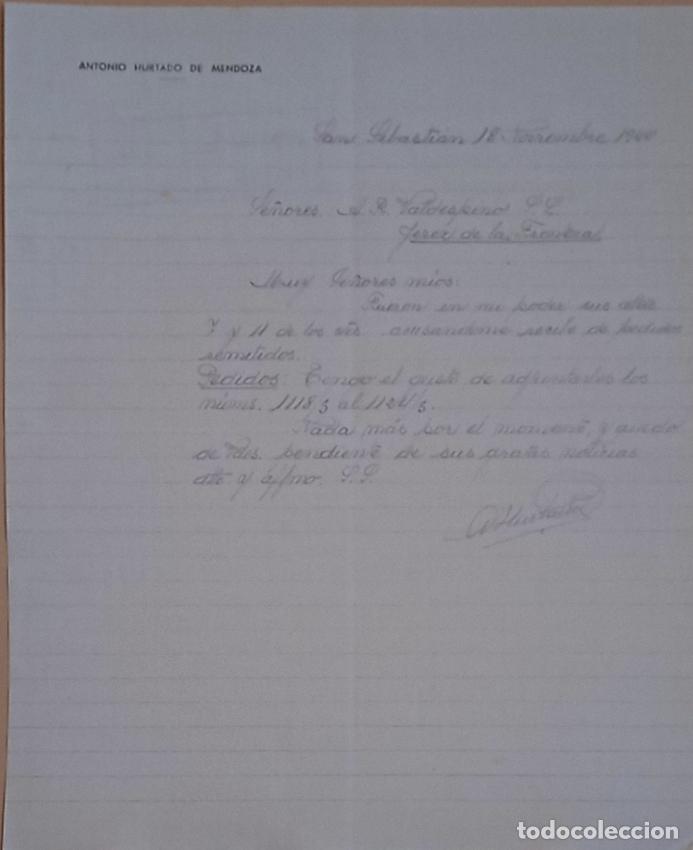 ANTONIO HURTADO DE MENDOZA
San Sebastián 18 Noviembre
Señores. A. R. Valdespino S. L.
Jerez de la Frontera
Muy Señores mios:
Fueron en mi poder sus attas
7 y 11 de los ctes. acusandome recibo de pedidos
remitidos.
Pedidos: Tengo el gusto de adjuntarles los
núms. 1118/3 al 1124/3.
Nada más por el momento, y quedo
de Vdes. pendiente de sus gratas noticias
atto y affmo. S.S.
A Hurtado
todocoleccion
todocoleccion.net